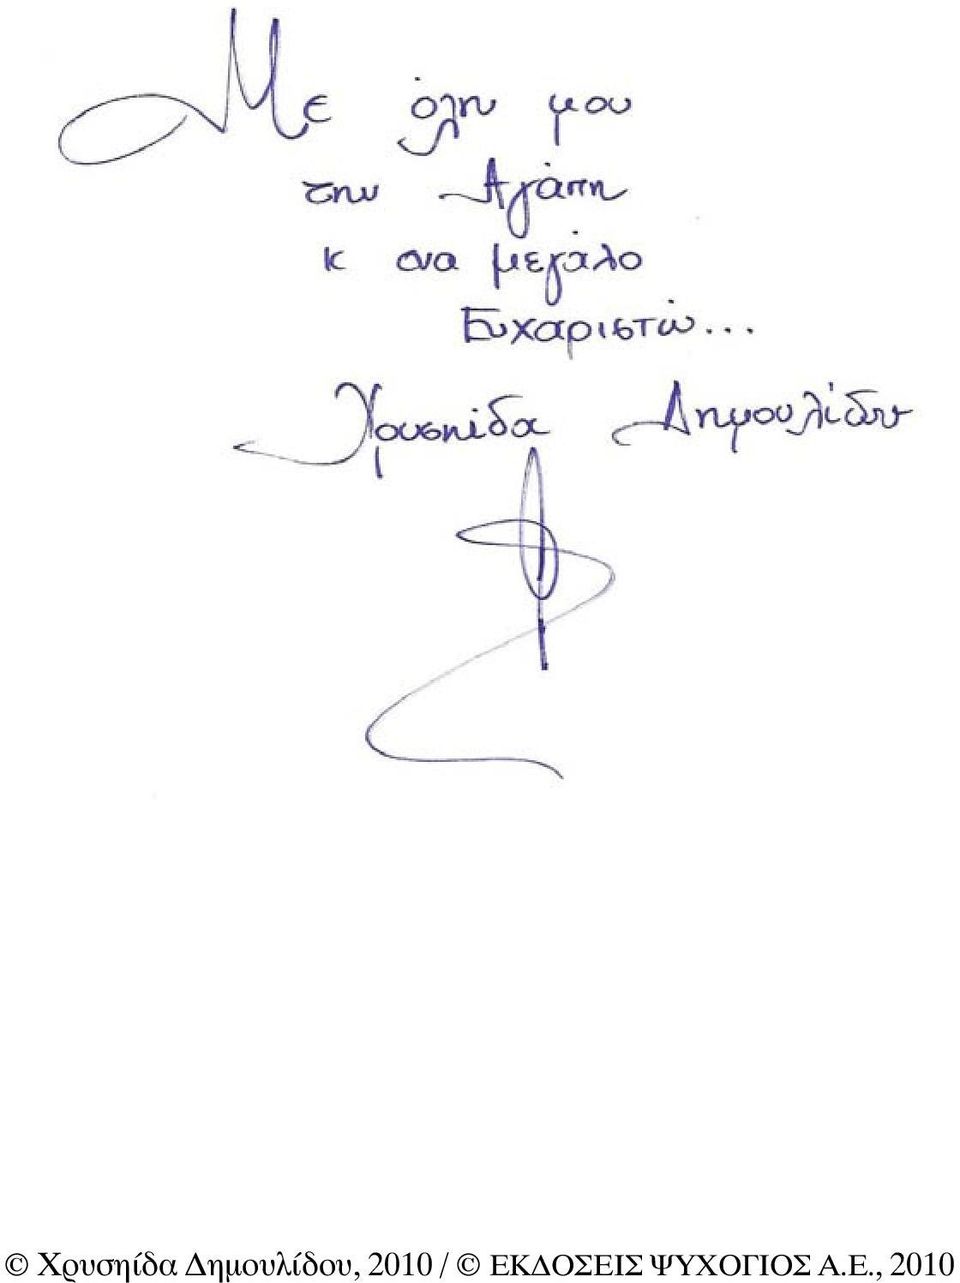 Με όλη μου
την Αγάπη
κ ένα μεγάλο
Ευχαριστώ...
Χρυσηίδα Δημουλίδου
© Χρυσηίδα Δημουλίδου, 2010 / © ΕΚΔΟΣΕΙΣ ΨΥΧΟΓΙΟΣ Α.Ε., 2010